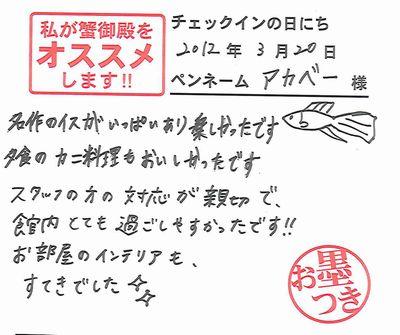 私が蟹御殿を
オススメ
します!!
チェックインの日にち
2012年 3月20日
ペンネーム アカベー 様
名作のイスがいっぱいあり楽しかったです
夕食のカニ料理もおいしかったです
スタッフの方の対応が親切で、
館内とても過ごしやすかったです!!
お部屋のインテリアも、
すてきでした
お墨つき